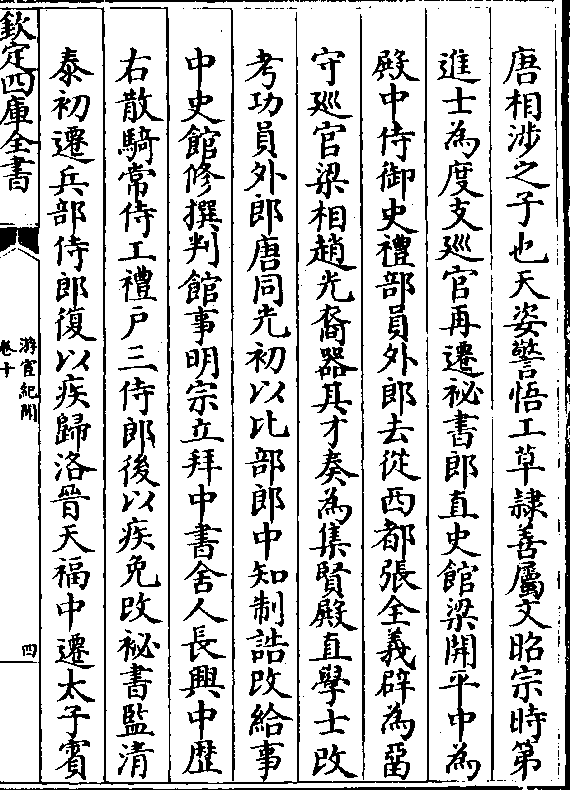 唐相涉之子也天姿警悟工草隸善屬文昭宗時第
進士為度支廵官再遷祕書郎直史館梁開平中為
殿中侍御史禮部員外郎去從西都張全義辟為畱
守廵官梁相趙光裔器其才奏為集賢殿直學士改
考功員外郎唐同光初以比部郎中知制誥改給事
中史館修撰判館事明宗立拜中書舍人長興中歴
右散騎常侍工禮戸三侍郎後以疾免改祕書監清
泰初遷兵部侍郎復以疾歸洛晉天福中遷太子賓
欽定四庫全書
游宦紀聞
卷十
四